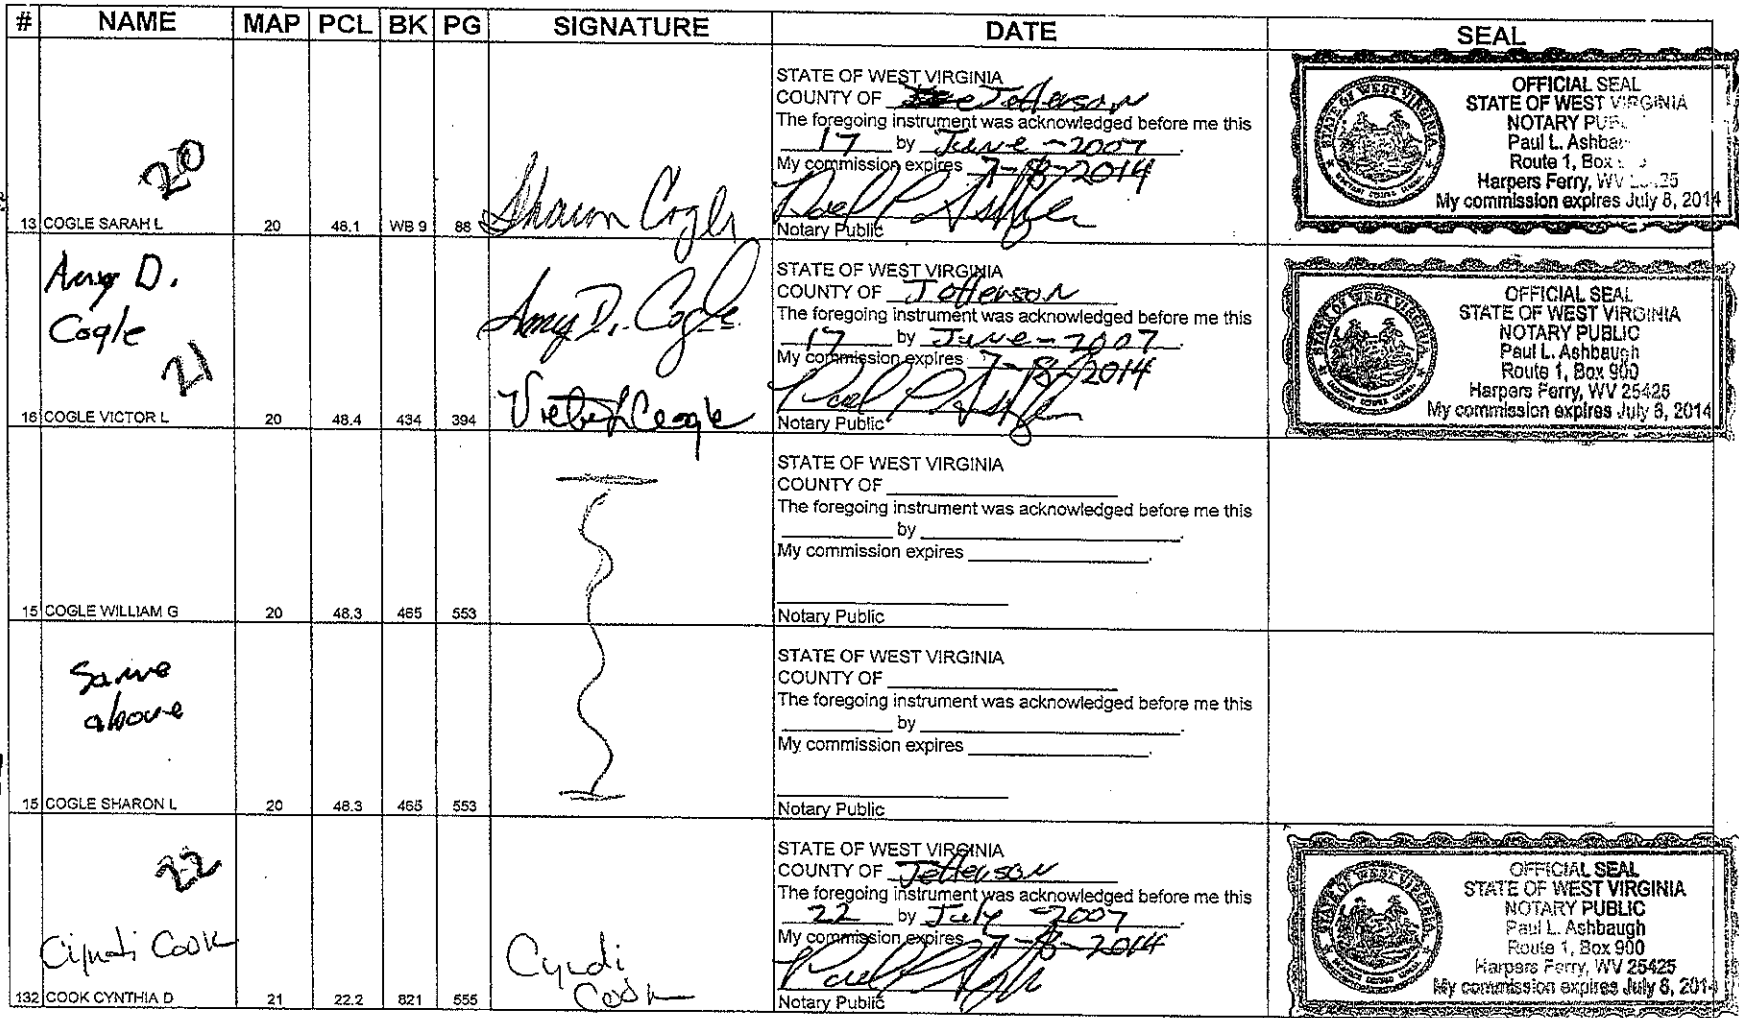 # NAME MAP PCL BK PG SIGNATURE DATE SEAL
20
13 COGLE SARAH L 20 48.1 WB 9 88
Sharon Cogle
STATE OF WEST VIRGINIA
COUNTY OF Jefferson
The foregoing instrument was acknowledged before me this
17 by June - 2007.
My commission expires 7-8-2014
Notary Public
OFFICIAL SEAL
STATE OF WEST VIRGINIA
NOTARY
Paul L.
Route 1, Box
Harpers Ferry, WV
My commission expires July 8, 2014
Amy D.
Cogle
21
16 COGLE VICTOR L 20 48.4 434 394
Amy D. Cogle
Victor L Cogle
STATE OF WEST VIRGINIA
COUNTY OF Jefferson
The foregoing instrument was acknowledged before me this
17 by June - 2007.
My commission expires 7-8-2014
Notary Public
OFFICIAL SEAL
STATE OF WEST VIRGINIA
NOTARY PUBLIC
Paul L. Ashbaugh
Route 1, Box 900
Harpers Ferry, WV 25425
My commission expires July 8, 2014
15 COGLE WILLIAM G 20 48.3 465 553
STATE OF WEST VIRGINIA
COUNTY OF
The foregoing instrument was acknowledged before me this
by
My commission expires
Notary Public
Same
above
15 COGLE SHARON L 20 48.3 465 553
STATE OF WEST VIRGINIA
COUNTY OF
The foregoing instrument was acknowledged before me this
by
My commission expires
Notary Public
22
Cyndi Cook
132 COOK CYNTHIA D 21 22.2 821 555
Cyndi
Cook
STATE OF WEST VIRGINIA
COUNTY OF Jefferson
The foregoing instrument was acknowledged before me this
22 by July - 2007.
My commission expires 7-8-2014
Notary Public
OFFICIAL SEAL
STATE OF WEST VIRGINIA
NOTARY PUBLIC
Paul L. Ashbaugh
Route 1, Box 900
Harpers Ferry, WV 25425
My commission expires July 8, 2014